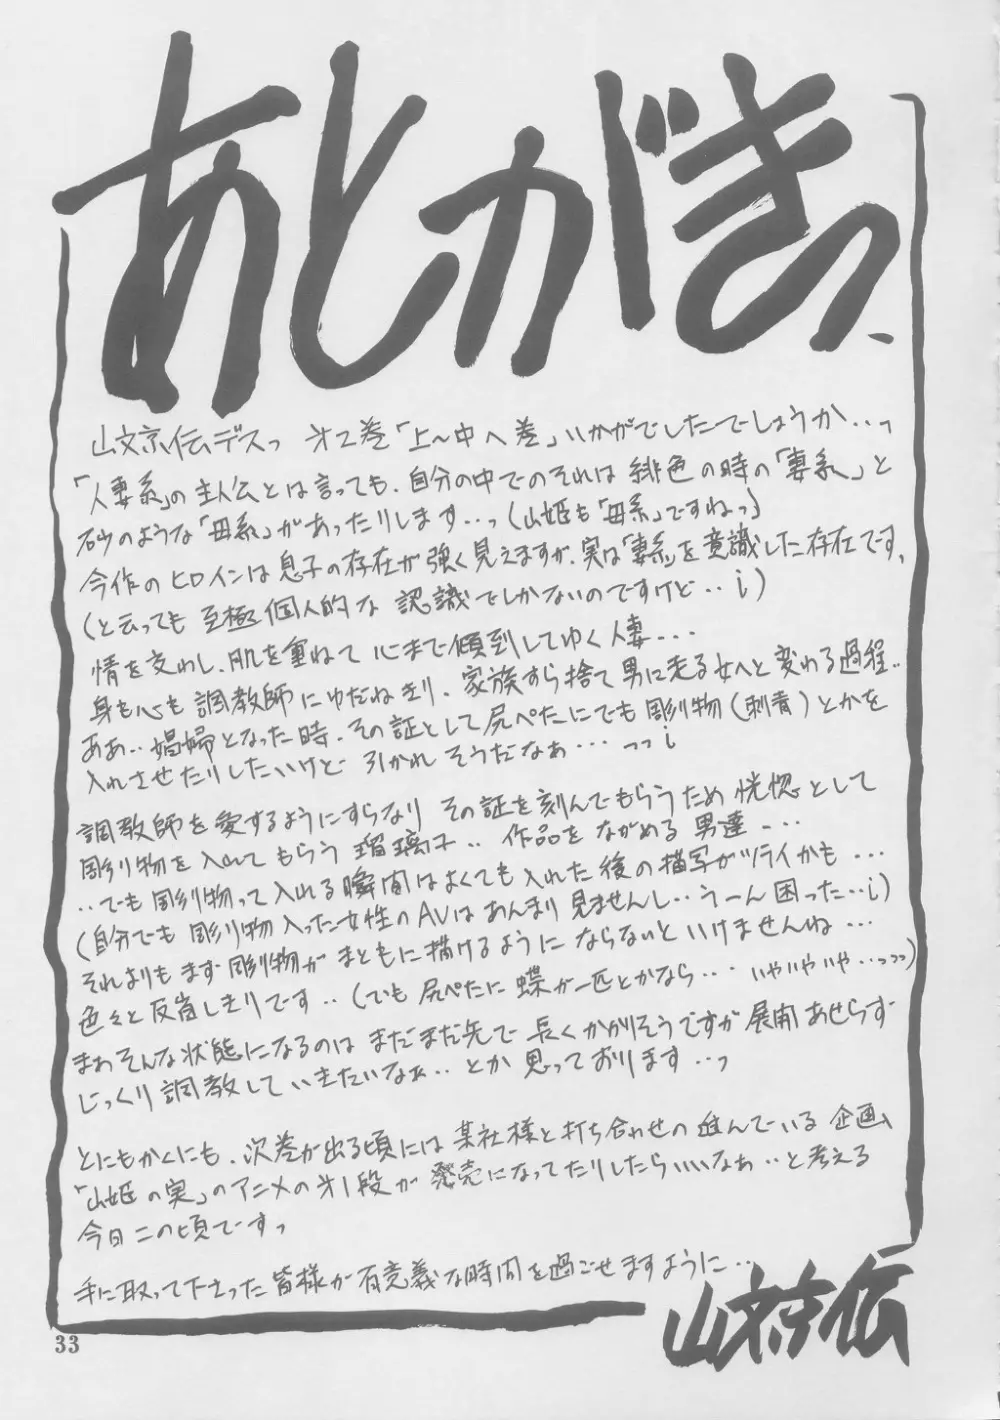 あとがきっ、
山文京伝デスっ 才2巻「上〜中へ差」いかがでしたでしょうか…っ
「人妻系」の主人公とは言っても、自分の中でのそれは緋色の時の「妻系」と
砂のような「母系」があったりします…っ(山姫も「母系」ですねっ)
今作のヒロインは息子の存在が強く見えますが、実は「妻系」を意識した存在です、
(と云っても至極個人的な認識でしかないのですけど‥i)
情を交わし、肌を重ねて心まで傾倒してゆく人妻…
身も心も調教師にゆだねきり、家族すら捨て男に走る女へと変わる過程‥
ああ‥娼婦となった時、その証として尻ぺたにでも彫り物(刺青)とかを
入れさせたりしたいけど引かれそうだなぁ…っっi
調教師を愛するようにすらなりその証を刻んでもらうため恍惚として
彫り物を入れてもらう瑠璃子‥作品をながめる男達…
‥でも彫り物って入れる瞬間はよくても入れた後の描写がツライかも…
(自分でも彫り物入った女性のAVはあんまり見ませんし‥うーん困った…i)
それよりもまず彫り物がまともに描けるようにならないといけませんね…
色々と反省しきりです‥(でも尻ぺたに蝶が一匹とかなら…いやいやいや‥っっっ)
まぁそんな状態になるのはまだまだ先で長くかかりそうですが展開あせらず
じっくり調教していきたいなぁ‥とか思っております…っ
とにもかくにも、次巻が出る頃には某社様と打ち合わせの進んでいる企画、
「山姫の実」のアニメの才1段が発売になってたりしたらいいなぁ‥と考える
今日この頃ですっ
手に取って下さった皆様が有意義な時間を過ごせますように…
山文京伝
33